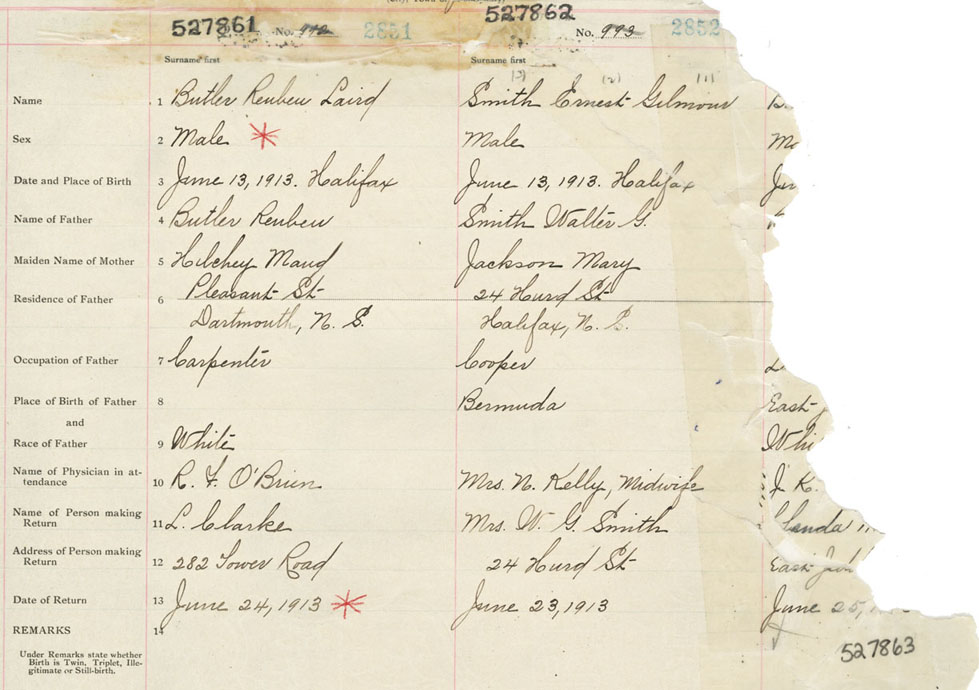 527861 No. 992 2851 527862 No. 993 2852
Surname first Surname first
(3) (2) (1)
Name 1 Butler Reuben Laird Smith Ernest Gilmour
Sex 2 Male Male
Date and Place of Birth 3 June 13, 1913. Halifax June 13, 1913. Halifax
Name of Father 4 Butler Reuben Smith Walter G.
Maiden Name of Mother 5 Hilchey Maud Jackson Mary
Residence of Father 6 Pleasant St 24 Hurd St
Dartmouth, N. S. Halifax, N. S.
Occupation of Father 7 Carpenter Cooper
Place of Birth of Father 8 Bermuda East
and
Race of Father 9 White Whi
Name of Physician in at-
tendance 10 R. F. O'Brien Mrs. N. Kelly, Midwife J. K.
Name of Person making
Return 11 L. Clarke Mrs. W. G. Smith
Address of Person making
Return 12 282 Tower Road 24 Hurd St East
Date of Return 13 June 24, 1913 June 23, 1913 June 25, 1
REMARKS 14
527863
Under Remarks state whether
Birth is Twin, Triplet, Ille-
gitimate or Still-birth.